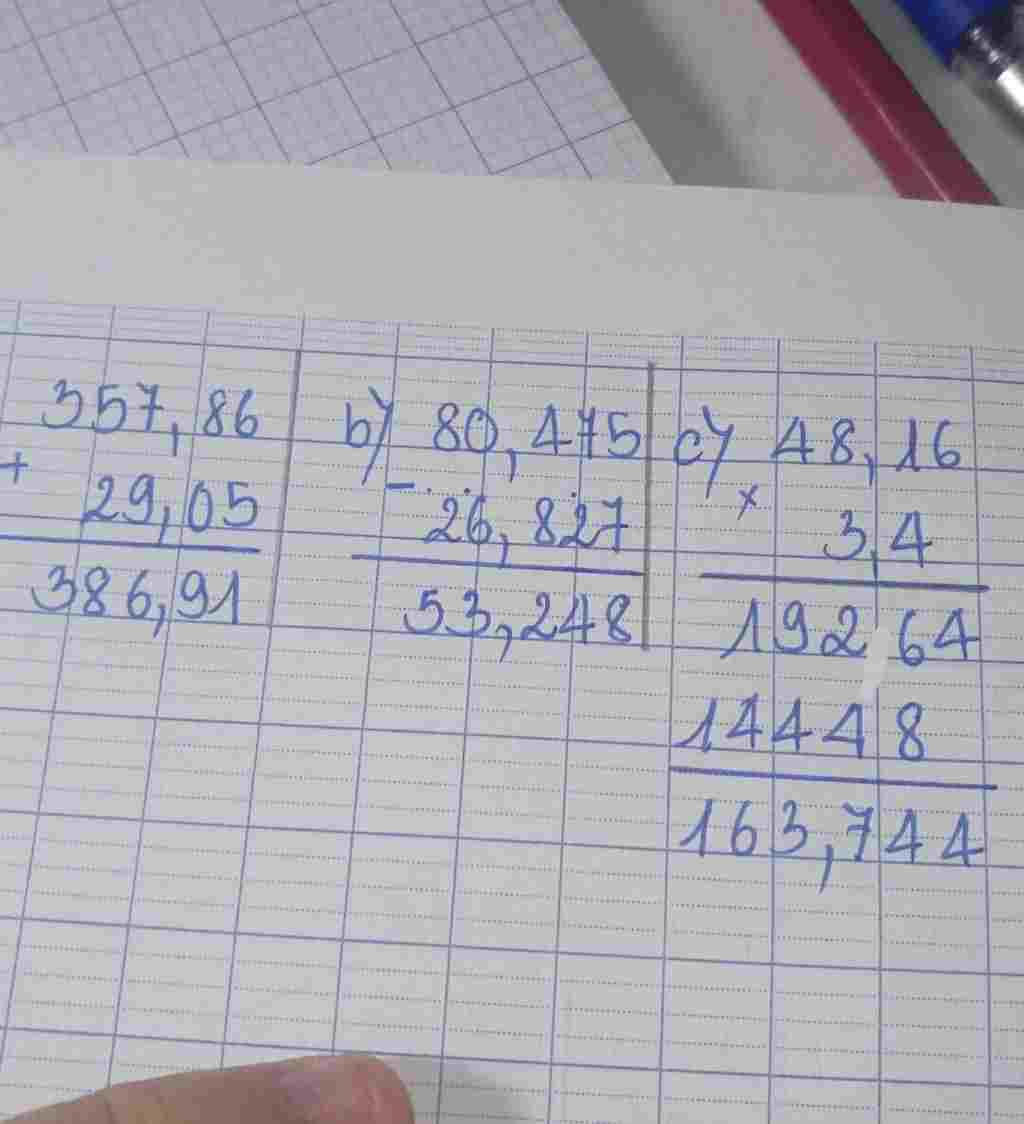 357,86
+
29,05
386,91
b) 80,475
-
26,827
53,248
c) 48,16
×
3,4
19264
14448
163,744